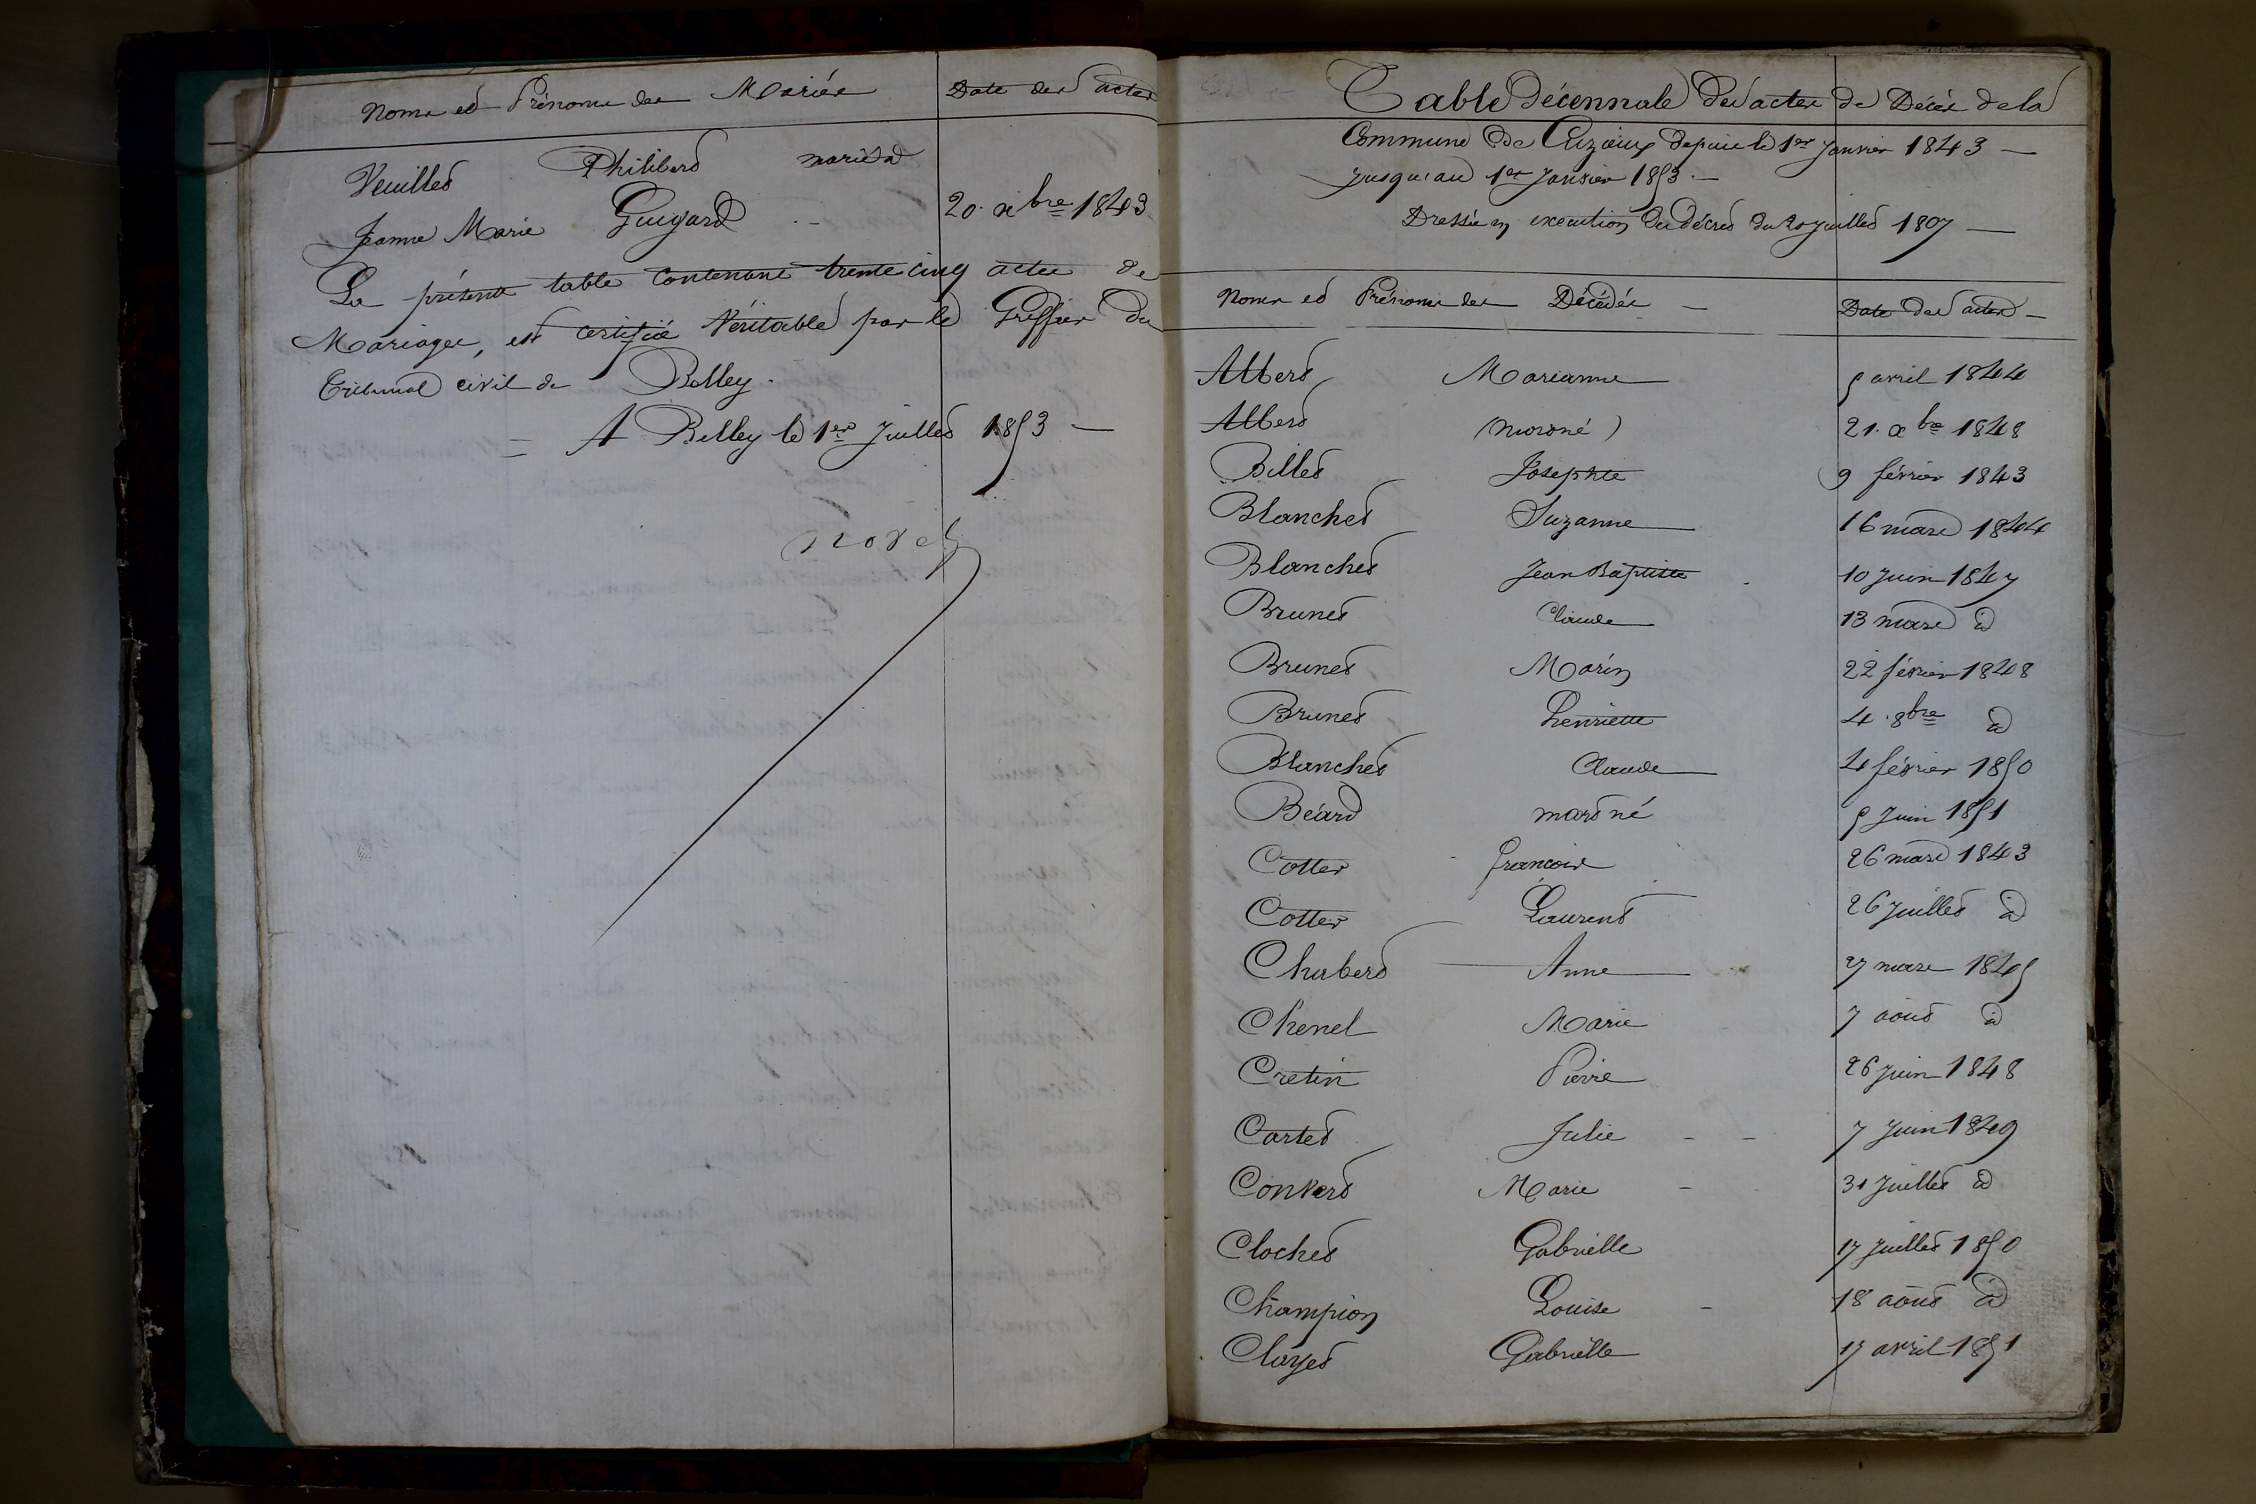 Noms et Prénoms des Mariés Date des actes
Veuillet Philibert marié à
Jeanne Marie Guigard 20 xbre 1843
La présente table contenant trente cinq actes de
Mariages, est certifiée Véritable par le Greffier du
Tribunal civil de Belley.
A Belley le 1er Juillet 1853
Table décennale des actes de Décès de la
Commune de Cuzieux depuis le 1er Janvier 1843
Jusqu'au 1er Janvier 1853
Dressée en exécution du décret du 20 Juillet 1807
Noms et Prénoms des Décédés Date des actes
Albert Marianne 5 avril 1844
Albert (mort né) 21 xbre 1848
Billet Josephte 9 février 1843
Blanchet Suzanne 16 mars 1844
Blanchet Jean Baptiste 10 Juin 1847
Brunet Claude 13 mars id
Brunet Marin 22 février 1848
Brunet henriette 4 8bre id
Blanchet Claude 4 février 1850
Béard mort né 5 Juin 1851
Cotter françois 26 mars 1843
Cotter Laurent 26 Juillet id
Chabert Anne 27 mars 1845
Chenel Marie 7 août id
Cretin Pierre 26 Juin 1848
Cartet Julie 7 Juin 1849
Convert Marie 31 Juillet id
Clochet Gabrielle 17 Juillet 1850
Champion Louise 18 août id
Clayet Gabrielle 17 avril 1851